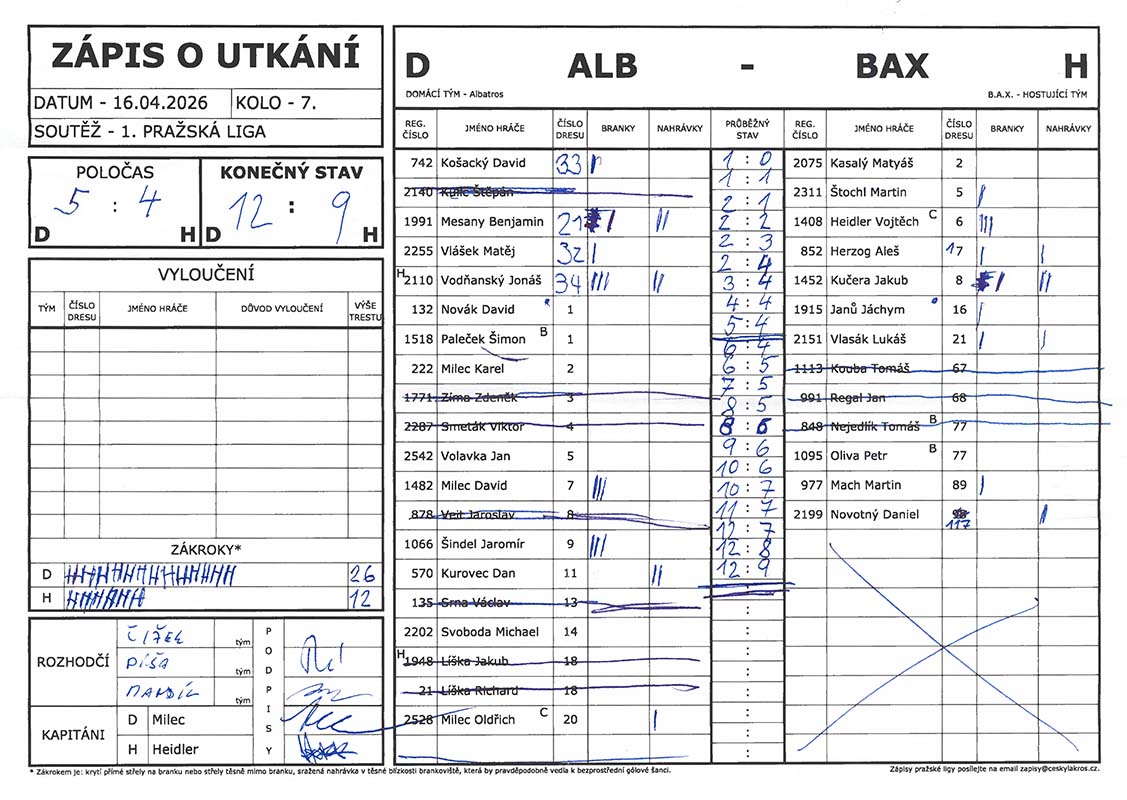 ZÁPIS O UTKÁNÍ
DATUM - 16.04.2026 KOLO - 7.
SOUTĚŽ - 1. PRAŽSKÁ LIGA
POLOČAS KONEČNÝ STAV
5 : 4 12 : 9
D H D H
VYLOUČENÍ
TÝM ČÍSLO DRESU JMÉNO HRÁČE DŮVOD VYLOUČENÍ VÝŠE TRESTU
ZÁKROKY*
D 26
H 12
ROZHODČÍ
ČÍŽEK tým
PÍŠA tým
MANDÍK tým
PODPISY
KAPITÁNI
D Milec
H Heidler
D ALB - BAX H
DOMÁCÍ TÝM - Albatros B.A.X. - HOSTUJÍCÍ TÝM
REG. ČÍSLO JMÉNO HRÁČE ČÍSLO DRESU BRANKY NAHRÁVKY PRŮBĚŽNÝ STAV REG. ČÍSLO JMÉNO HRÁČE ČÍSLO DRESU BRANKY NAHRÁVKY
742 Košacký David 33
2140 Kulle Štěpán
1991 Mesany Benjamin 21
2255 Vlášek Matěj 32
H 2110 Vodňanský Jonáš 34
132 Novák David 1
1518 Paleček Šimon B 1
222 Milec Karel 2
1771 Zima Zdeněk 3
2287 Smeták Viktor 4
2542 Volavka Jan 5
1482 Milec David 7
878 Veit Jaroslav 8
1066 Šindel Jaromír 9
570 Kurovec Dan 11
135 Srna Václav 13
2202 Svoboda Michael 14
H 1948 Líška Jakub 18
21 Líška Richard 18
2528 Milec Oldřich C 20
1 : 0
1 : 1
2 : 1
2 : 2
2 : 3
2 : 4
3 : 4
4 : 4
5 : 4
6 : 4
6 : 5
7 : 5
8 : 5
8 : 6
9 : 6
10 : 6
10 : 7
11 : 7
12 : 7
12 : 8
12 : 9
:
:
:
:
:
:
:
:
2075 Kasalý Matyáš 2
2311 Štochl Martin 5
1408 Heidler Vojtěch C 6
852 Herzog Aleš 17
1452 Kučera Jakub 8
1915 Janů Jáchym 16
2151 Vlasák Lukáš 21
1113 Kouba Tomáš 67
991 Regal Jan 68
848 Nejedlík Tomáš B 77
1095 Oliva Petr B 77
977 Mach Martin 89
2199 Novotný Daniel 117
* Zákrokem je: krytí přímé střely na branku nebo střely těsně mimo branku, sražená nahrávka v těsné blízkosti brankoviště, která by pravděpodobně vedla k bezprostřední gólové šanci.
Zápisy pražské ligy posílejte na email zapisy@ceskylakros.cz.